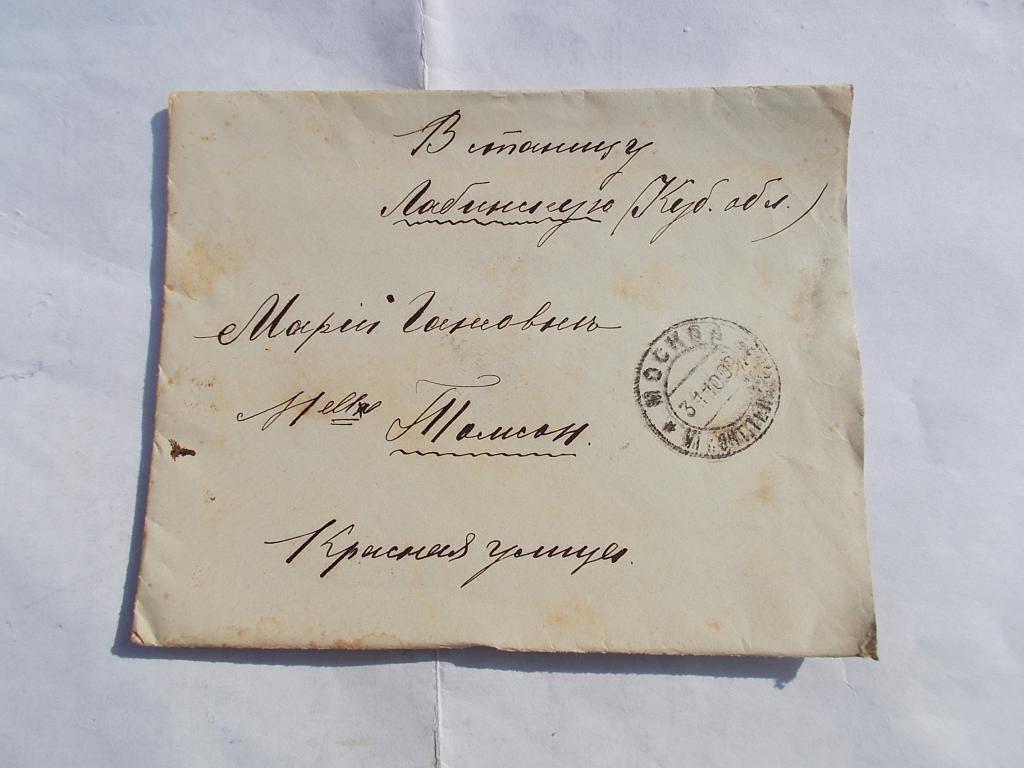 В станицу
Лабинскую (Куб. обл.)
Маріи
Melle Томсон.
Красная улица.
МОСКВА
31.10.